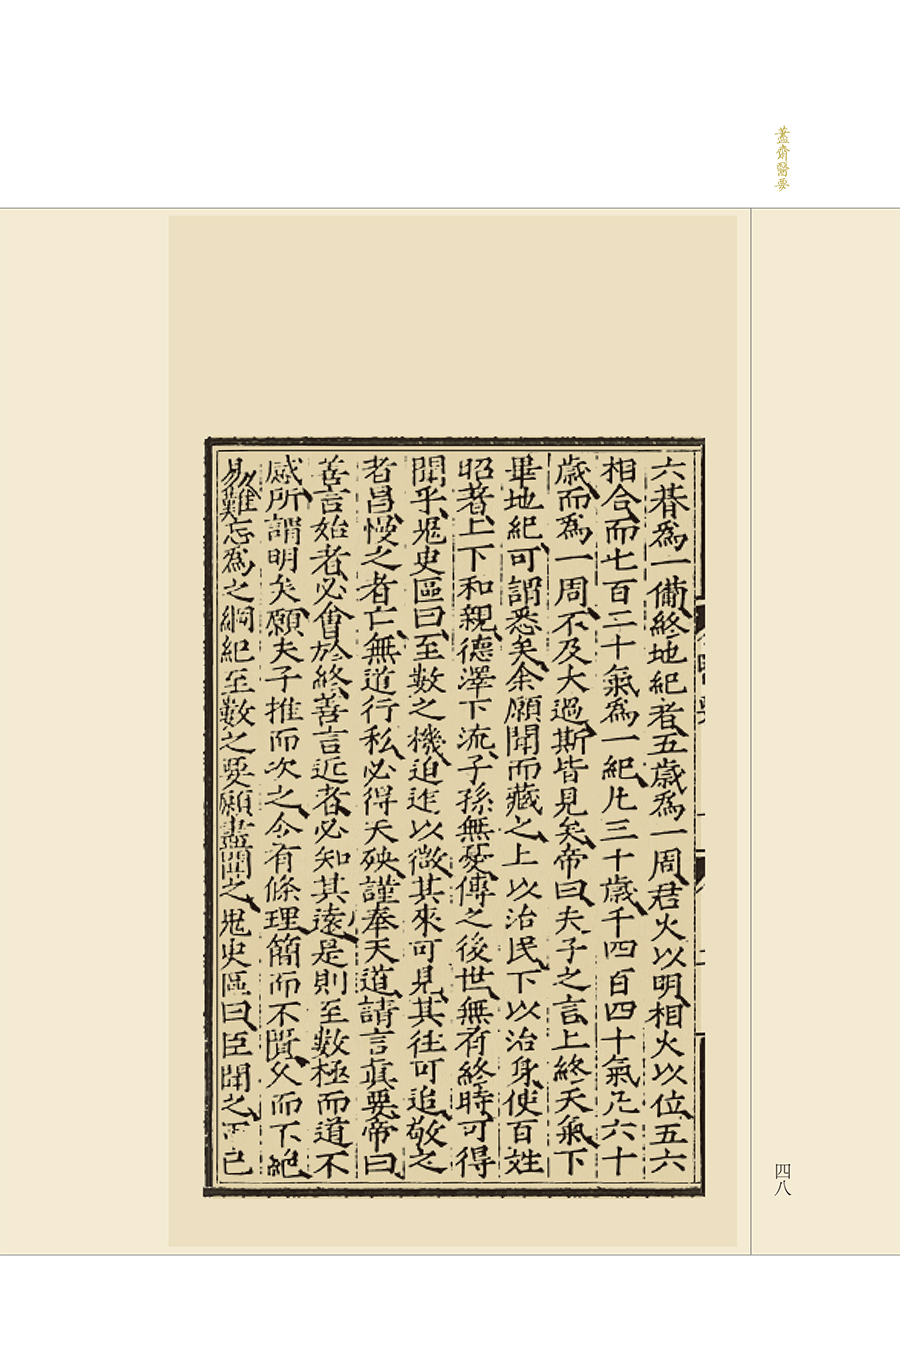 蓋齋醫要
六朞爲一備終地紀者五歲爲一周君火以明相火以位五六
相合而七百二十氣爲一紀凡三十歲千四百四十氣凡六十
歲而爲一周不及大過斯皆見矣帝曰夫子之言上終天氣下
畢地紀可謂悉矣余願聞而藏之上以治民下以治身使百姓
昭著上下和親德澤下流子孫無憂傳之後世無有終時可得
聞乎鬼臾區曰至數之機迫迮以微其來可見其往可追敬之
者昌慢之者亡無道行私必得夭殃謹奉天道請言眞要帝曰
善言始者必會於終善言近者必知其遠是則至數極而道不
惑所謂明矣願夫子推而次之令有條理簡而不匱久而不絕
易難忘爲之綱紀至數之要願盡聞之鬼臾區曰臣聞之
四八